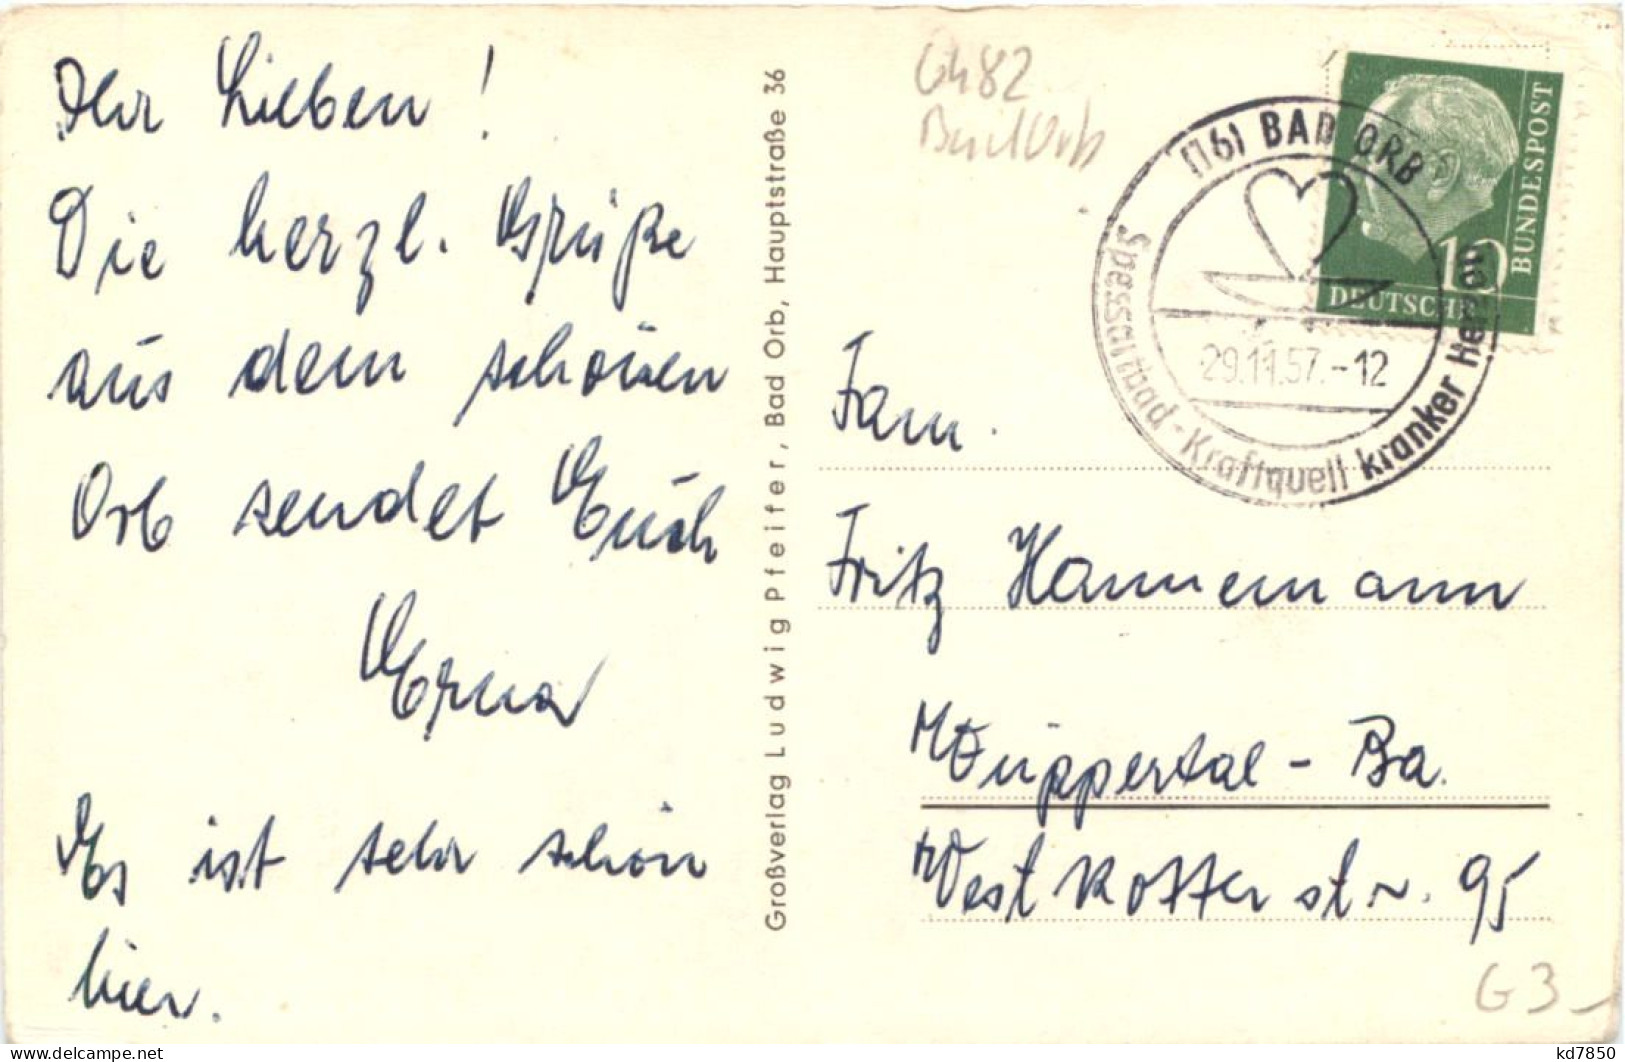 Ihr Lieben!
Die herzl. Grüße
aus dem schönen
Orb sendet Euch
Erna
Es ist sehr schön
hier.
Großverlag Ludwig Pfeifer, Bad Orb, Hauptstraße 36
6482
Bad Orb
(16) BAD ORB
Spessartbad - Kraftquell kranker Herzen
29.11.57.-12
10
DEUTSCHE
BUNDESPOST
Fam.
Fritz Hannemann
Wuppertal - Ba.
Westkotterstr. 95
G3-
kd7850